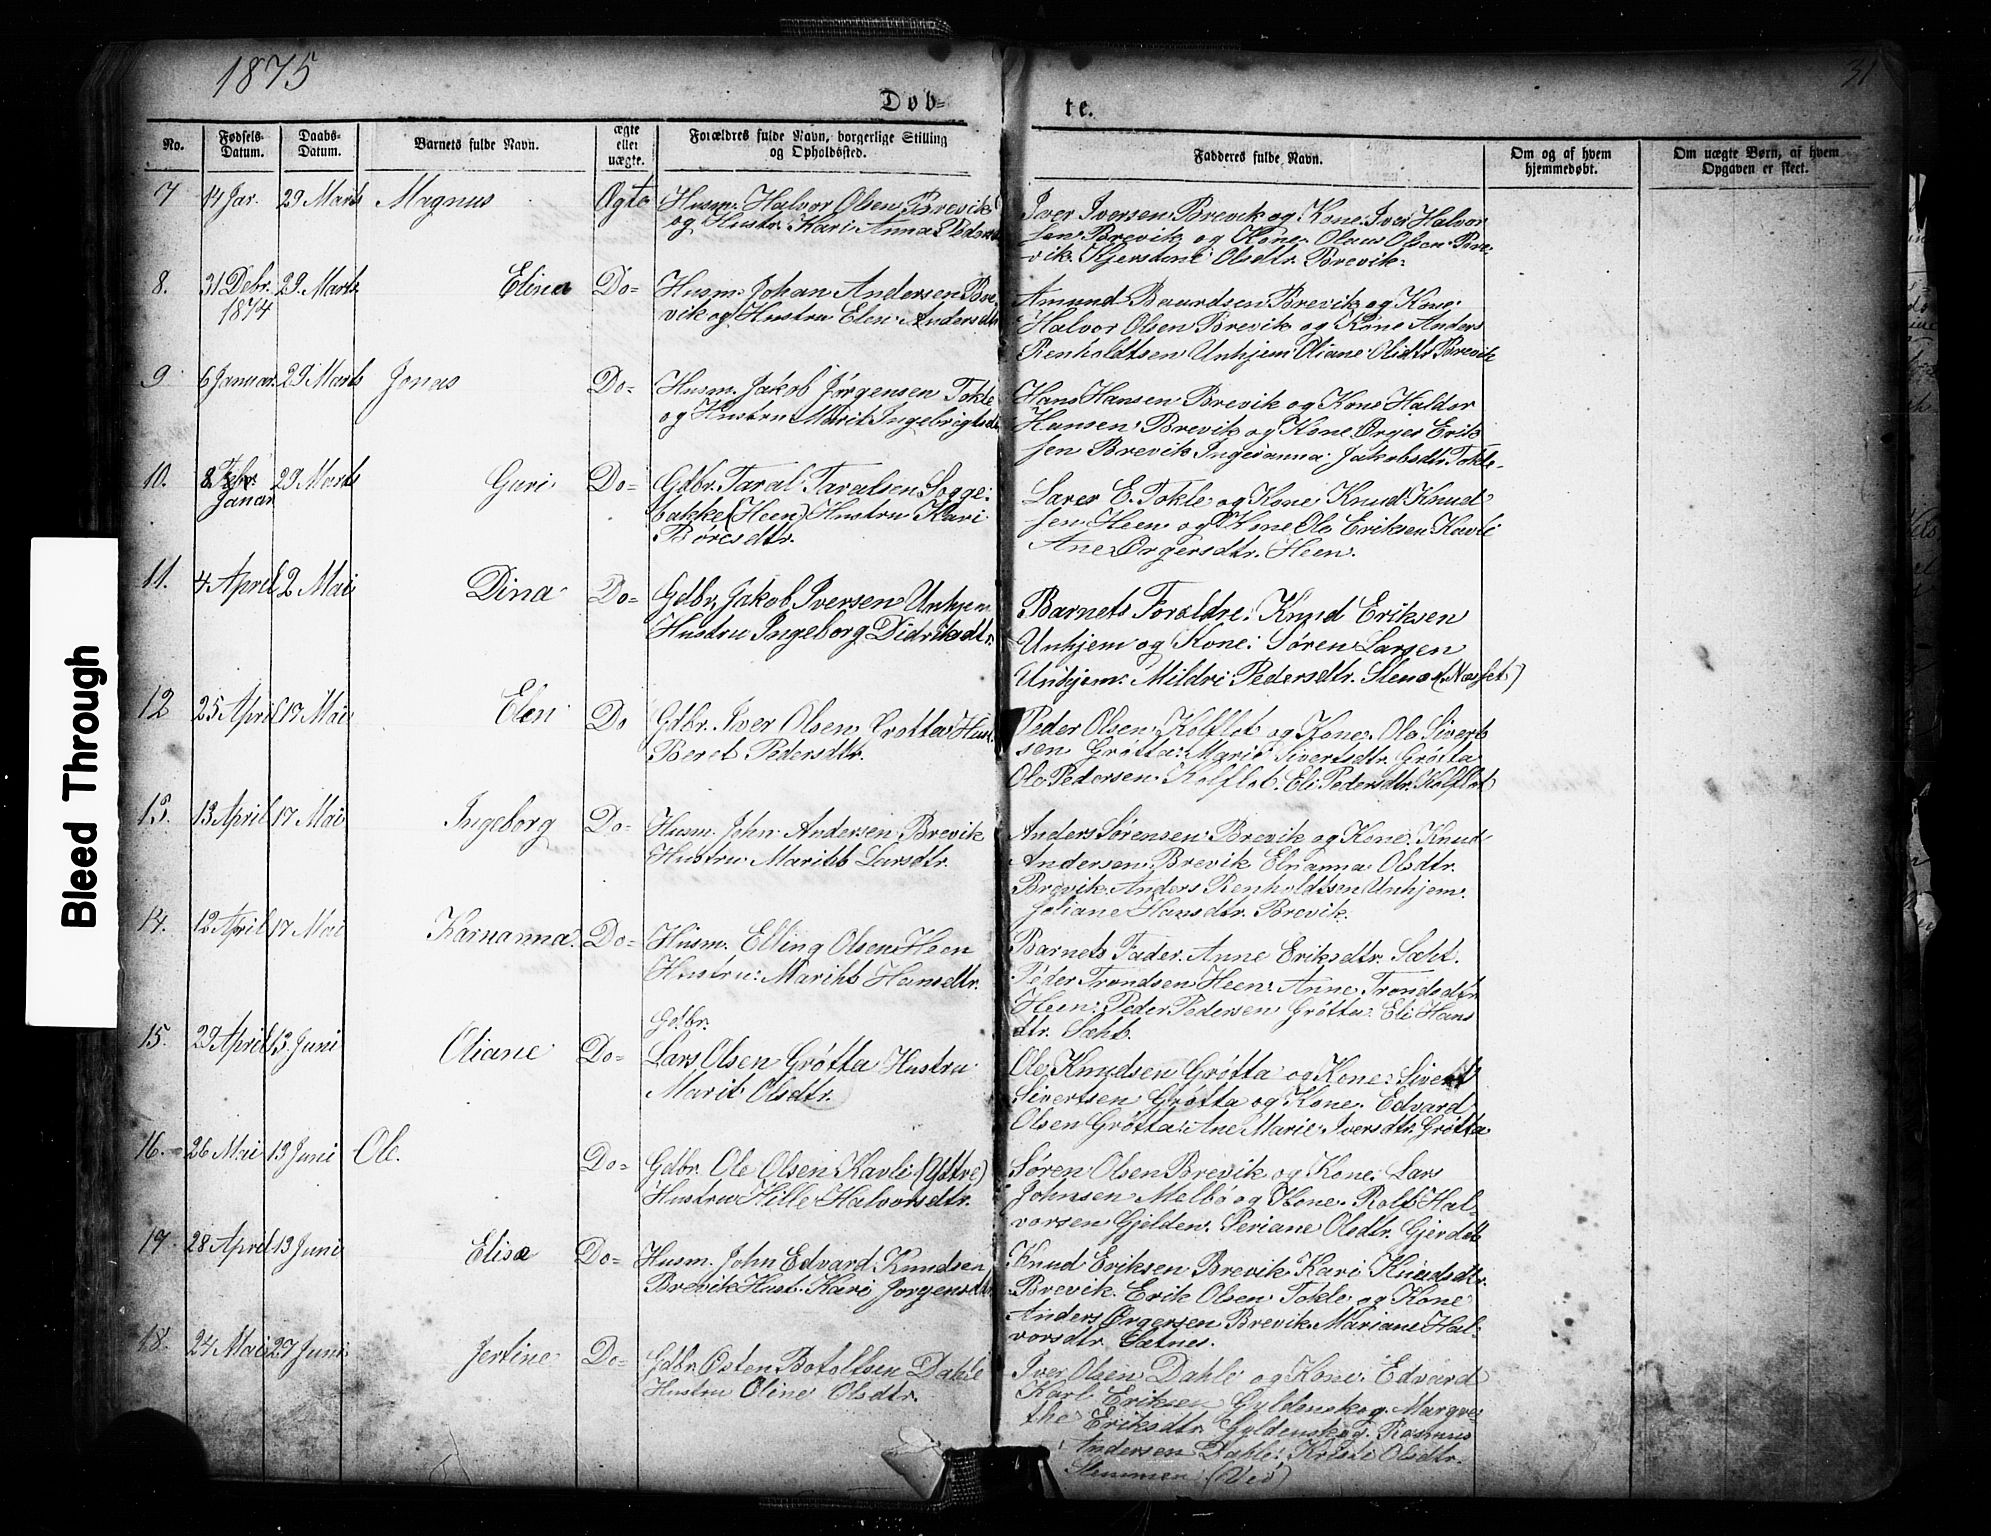 1875
31
Døb-
te.
No.
Fødsels-
Datum.
Daabs-
Datum.
Barnets fulde Navn.
ægte
eller
uægte.
Forældres fulde Navn, borgerlige Stilling
og Opholdssted.
Fadderes fulde Navn.
Om og af hvem
hjemmedøbt.
Om uægte Børn, af hvem
Opgaven er skeet.
7 14 Jar. 29 Marts Magnus Ægte Husm. Halvor Olsen Brevik
og Hustr. Kari Anna Peders
Iver Iversen Brevik og Kone. Iver Halvor
sen Brevik og Kone. Olaus Olsen Bre-
vik. Kjerstine Olsdtr. Brevik.
8. 31 Debr. 29. Marts Elisa Do- Husm. Johan Andersen Bre
1874 vik og Hustru Elen Andersdtr
Amund Baardsen Brevik og Kone.
Halvor Olsen Brevik og Kone Anders
Renholdtsen Unhjem Oliane Olsdtr Brevik
9 6 Januar. 29 Marts Jonas Do- Husm. Jakob Jørgensen Tokle
og Hustru Marit Ingebrigtsd
Hans Hansen Brevik og Kone Haldor
Hansen Brevik og Kone Ørges Erik
sen Brevik Ingeranna Jakobsdtr Tokle-
10. 8 Febr. 29 Marts Guri Do- Gdbr. Taral Taralsen Sogge:
Januar bakke (Heen) Hustru Kari
Boresdtr.
Lars E. Tokle og Kone Knud Knud
sen Heen og Kone Ole Eriksen Kavli
Ane Ørgersdtr. Heen.
11. 4 April 2 Mai Dina Do- Gdbr. Jakob Iversen Unhjem
Hustru Ingeborg Didriksdtr.
Barnets Foraldre. Knud Eriksen
Unhjem og Kone. Søren Larsen
Unhjem. Mildri Pedersdtr. (Nesset)
12 25 April 19 Mai Elen Do Gdbr. Iver Olsen Grøtta Hust.
Beret Pedersdtr.
Peder Olsen Kolflot og Kone. Ole Sivert
sen Grøtta. Marie Sivertsdtr. Grøtta
Ole Pedersen Kolflot. Eli Pedersdtr. Kolflot
13. 13 April 17 Mai Ingeborg Do- Husm. John Andersen Brevik
Hustru Marith Larsdtr.
Anders Sørensen Brevik og Kone. Knud
Andersen Brevik Elnanna Olsdtr.
Brevik. Anders Renholdtsen Unhjem.
Joliane Hansdtr. Brevik.
14. 12 April 17 Mai Karnanna. Do- Husm. Elling Olsen Heen
Hustru: Marith Hansdtr.
Barnets Fader. Anne Eriksdtr. Sæht.
Peder Trondsen Heen: Anne Trondsdtr
Heen: Peder Pedersen Grøtta Eli Hans
dtr. Sæht.
Gdbr.
15. 29 April 13. Juni Oliane Do- Lars Olsen Grøtta Hustru
Marit Olsdtr.
Ole Knudsen Grøtta og Kone. Sivert
Sivertsen Grøtta og Kone. Edvard
Olsen Grøtta. Ane Marie Iversdtr. Grøtta
16. 26 Mai 13 Juni Ole. Do- Gdbr. Ole Olsen Kavli (Ystre)
Hustru Hille Halvorsdtr.
Søren Olsen Brevik og Kone. Lars
Johnsen Melbø og Kone. Rolf Hal-
vorsen Gjelden. Periane Olsdtr. Gjerdet
17. 28 April 13 Juni Elisæ Do- Husm. John Edvard Knudsen
Brevik Hust. Kari Jørgensdtr
Knud Eriksen Brevik Kari Knudsdtr.
Brevik. Erik Olsen Tokle og Kone
Anders Ørgersen Brevik Mariane Hal-
vorsdtr. Sætnes.
18. 24 Mai 27 Juni Jertine Do- Gdbr Østen Botoltsen Dahle
Hustru Oline Olsdtr.
Iver Olsen Dahle og Kone. Edvard
Karl Eriksen Gyldenskog. Margre-
the Eriksdtr. Gyldenskog. Rasmus
Andersen Dahle. Kristi Olsdtr.
Slemmen (Ved)
Bleed Through